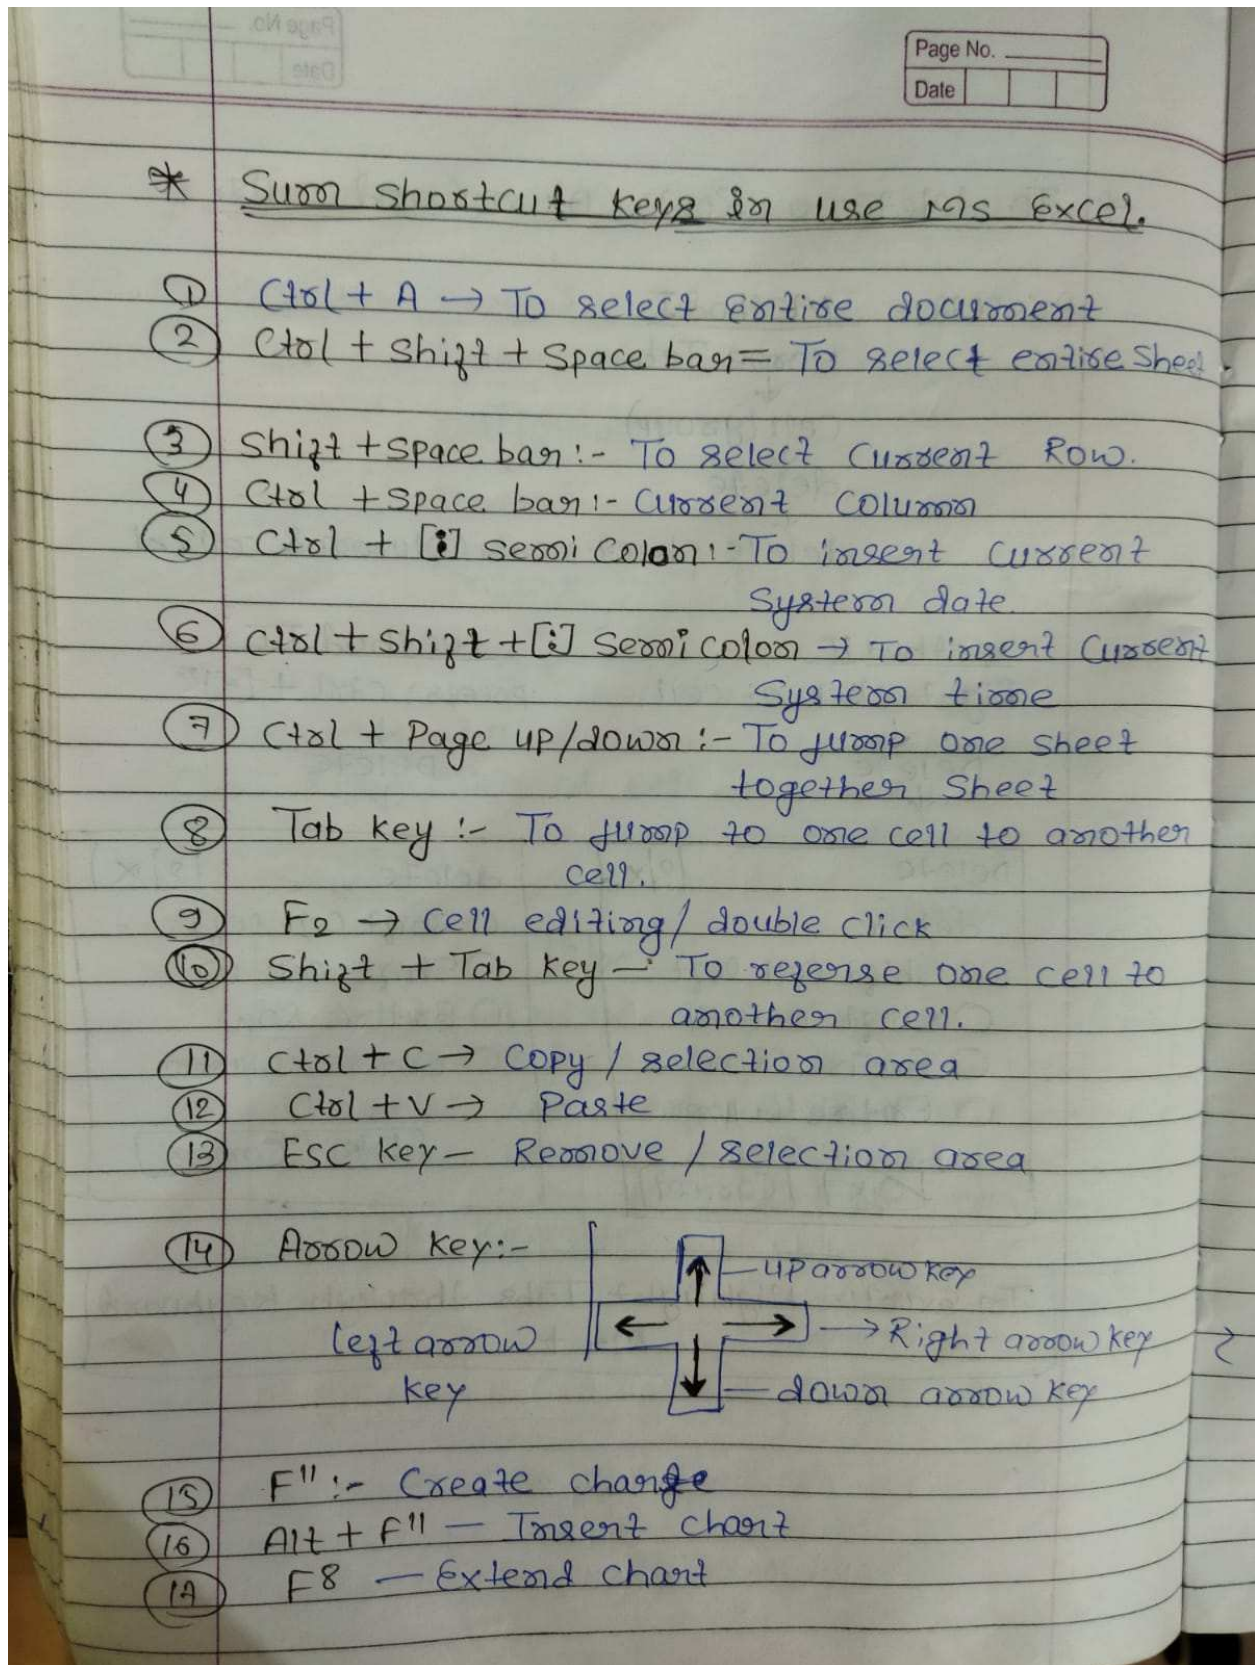 Page No.
Date
* Sum shortcut keys in use MS Excel.
① Ctrl + A → To select entire document
② Ctrl + Shift + Space bar = To select entire Sheet
③ Shift + Space bar :- To select current Row.
④ Ctrl + Space bar :- Current Column
⑤ Ctrl + [;] semi colon :- To insert current
System date
⑥ Ctrl + Shift + [;] Semi colon → To insert Current
System time
⑦ Ctrl + Page up/down :- To jump one sheet
together Sheet
⑧ Tab key :- To jump to one cell to another
cell.
⑨ F2 → Cell editing / double click
⑩ Shift + Tab key - To referse one cell to
another cell.
⑪ Ctrl + C → Copy / selection area
⑫ Ctrl + V → Paste
⑬ ESC key - Remove / selection area
⑭ Arrow key :-
up arrow key
left arrow → Right arrow key
key down arrow key
⑮ F11 :- Create
⑯ Alt + F11 - Insert chart
F8 - Extend chart